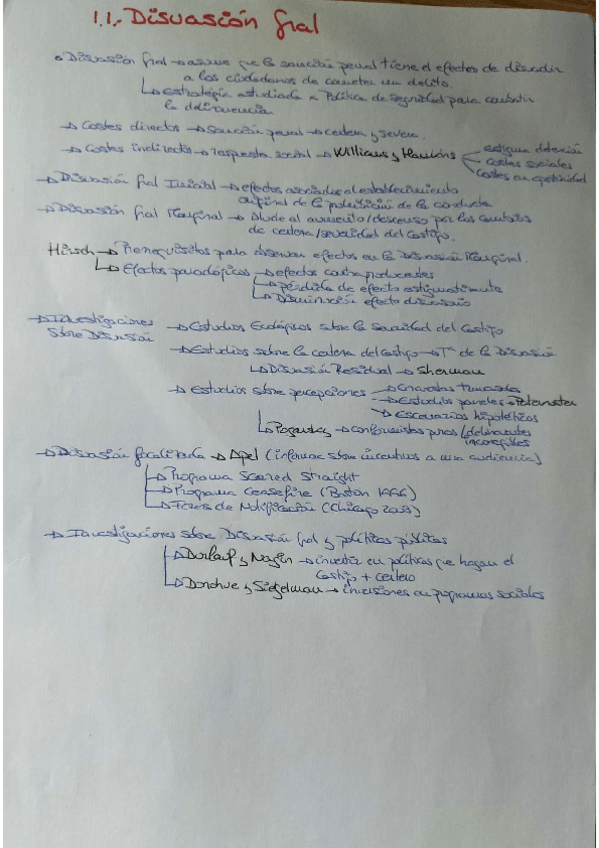 1.1. Disuasión gral
• Disuasión gral → asume que la sanción penal tiene el efectos de disuadir
a los ciudadanos de cometer un delito.
↳ estrategia estudiada x Política de Seguridad para combatir
la delincuencia
→ Costes directos → Sanción penal → certera y severa.
→ Costes indirectos → respuesta social → Williams y Hawkins
estigma detención
costes sociales
costes oportunidad
→ Disuasión gral Inicial → efectos asociados al establecimiento
original de la prohibición de la conducta
→ Disuasión gral Marginal → Alude al aumento/descenso por los cambios
de certeza/severidad del castigo.
Hirsch → Prerrequisitos para observar efectos en la Disuasión Marginal.
↳ Efectos paradójicos → efectos contraproducentes
→ pérdida de efecto estigmatizante
↳ Disminución efecto disuasorio
→ Investigaciones sobre Disuasión
→ Estudios Ecológicos sobre la Severidad del Castigo
→ Estudios sobre la certeza del castigo → Tª de la Disuasión
↳ Disuasión Residual → Sherman
→ Estudios sobre percepciones → Encuestas
→ Estudios paneles → Paternoster
→ Escenarios hipotéticos
↳ Pogarsky → conformistas puros/delincuentes
incorregibles
→ Disuasión focalizada → Apel (informar sobre incentivos a una audiencia)
→ Programa Scared Straight
→ Programa Ceasefire (Boston 1996)
↳ Foros de Notificación (Chicago 2003)
→ Investigaciones sobre Disuasión gral y políticas públicas
→ Durlauf y Nagin → invertir en políticas que hagan el
castigo + certero
↳ Donohue y Siegelman → inversiones en programas sociales